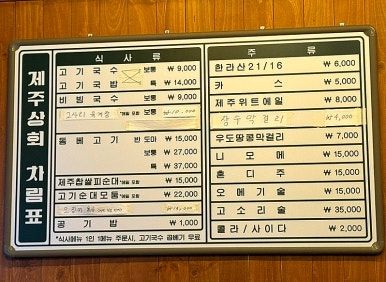 제주상회 차림표
식 사 류
고 기 국 수 보통 ₩ 9,000
고 기 국 밥 특 ₩ 14,000
비 빔 국 수 보통 ₩ 9,000
₩ 10,000
돔 베 고 기 반 도마 ₩ 15,000
보통 ₩ 27,000
특 ₩ 37,000
제주찹쌀피순대 ₩ 15,000
고기순대모둠 ₩ 22,000
공 기 밥 ₩ 1,000
*식사메뉴 1인 1메뉴 주문시, 고기국수 곱빼기 무료
주 류
한라산 21/16 ₩ 6,000
카 스 ₩ 5,000
제주위트에일 ₩ 8,000
장수막걸리
우도땅콩막걸리 ₩ 7,000
니 모 메 ₩ 15,000
혼 디 주 ₩ 15,000
오 메 기 술 ₩ 15,000
고 소 리 술 ₩ 35,000
콜 라 / 사 이 다 ₩ 2,000